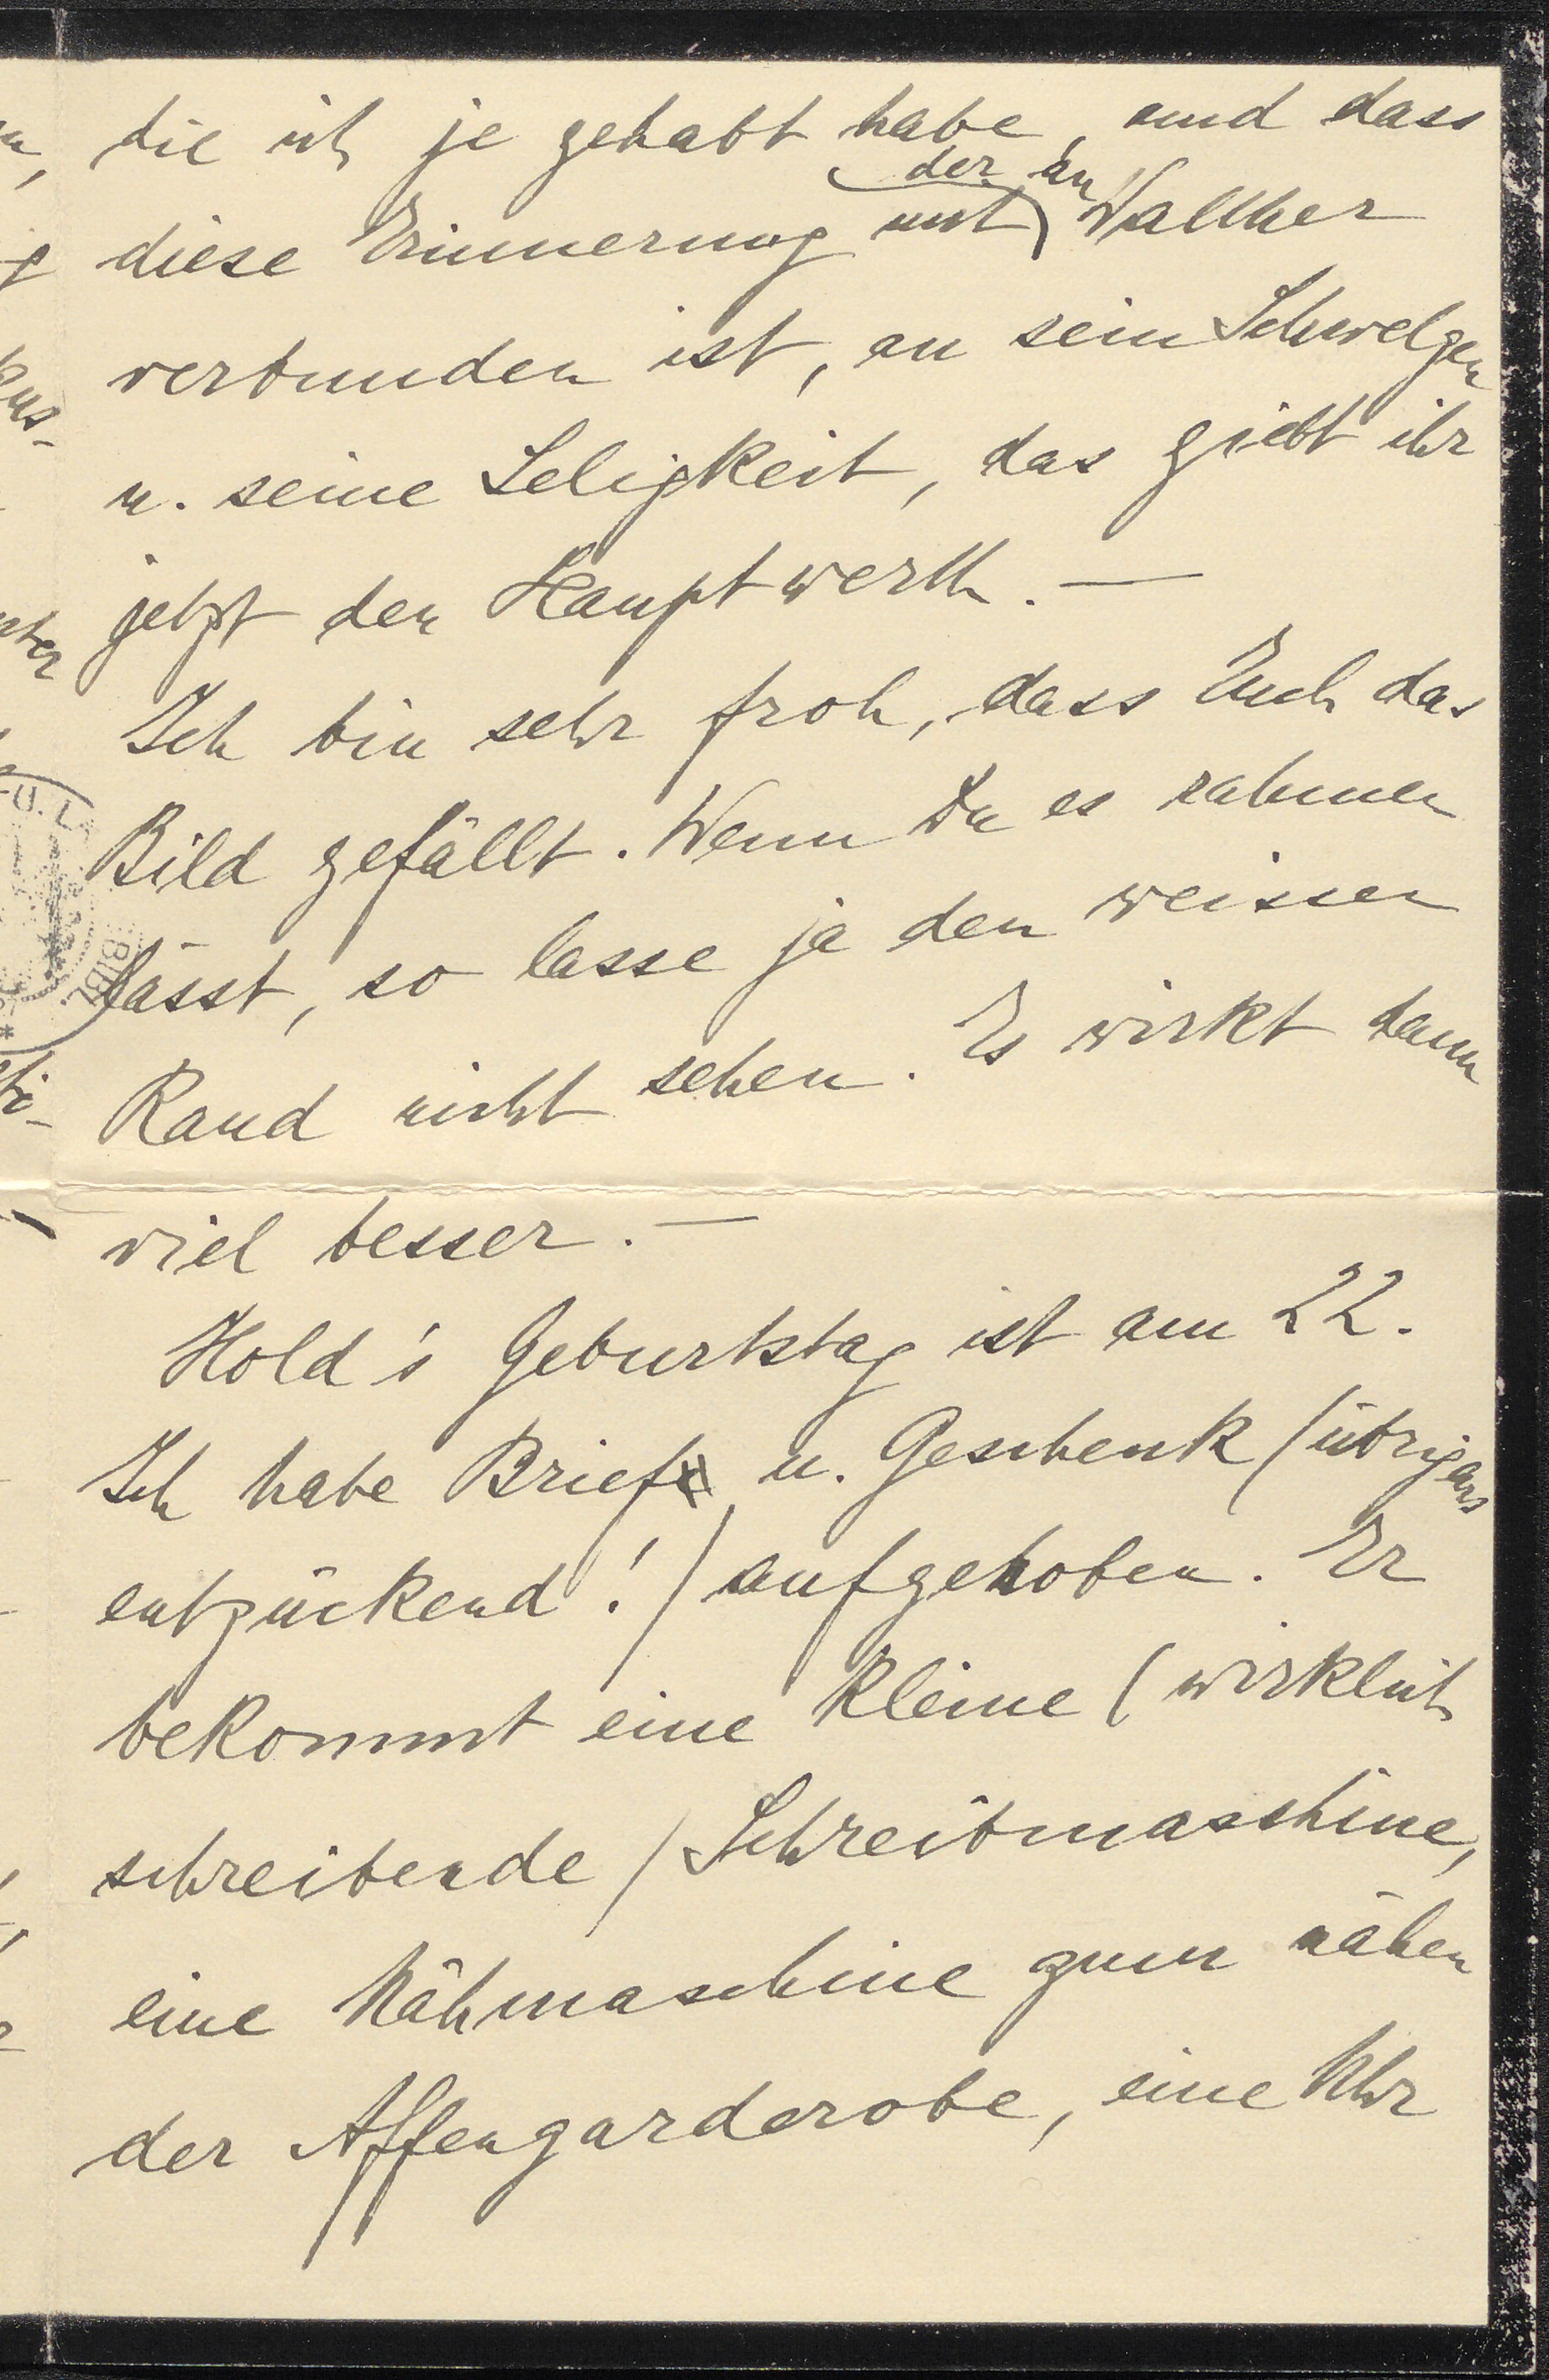 die ich je gehabt habe, und dass
diese Erinnerung mit der an Walther
verbunden ist, an sein Schwelgen
u. seine Seligkeit, das giebt ihr
jetzt den Hauptwerth. —
Ich bin sehr froh, dass Euch das
Bild gefällt. Wenn Du es rahmen
lässt, so lasse ja den weissen
Rand nicht sehen. Es wirkt dann
viel besser. —
Hold's Geburtstag ist am 22.
Ich habe Brief u. Geschenk (übrigens
entzückend!) aufgehoben. Er
bekommt eine kleine (wirklich
schreibende) Schreibmaschine,
eine Nähmaschine zum nähen
der Affengarderobe, eine Uhr